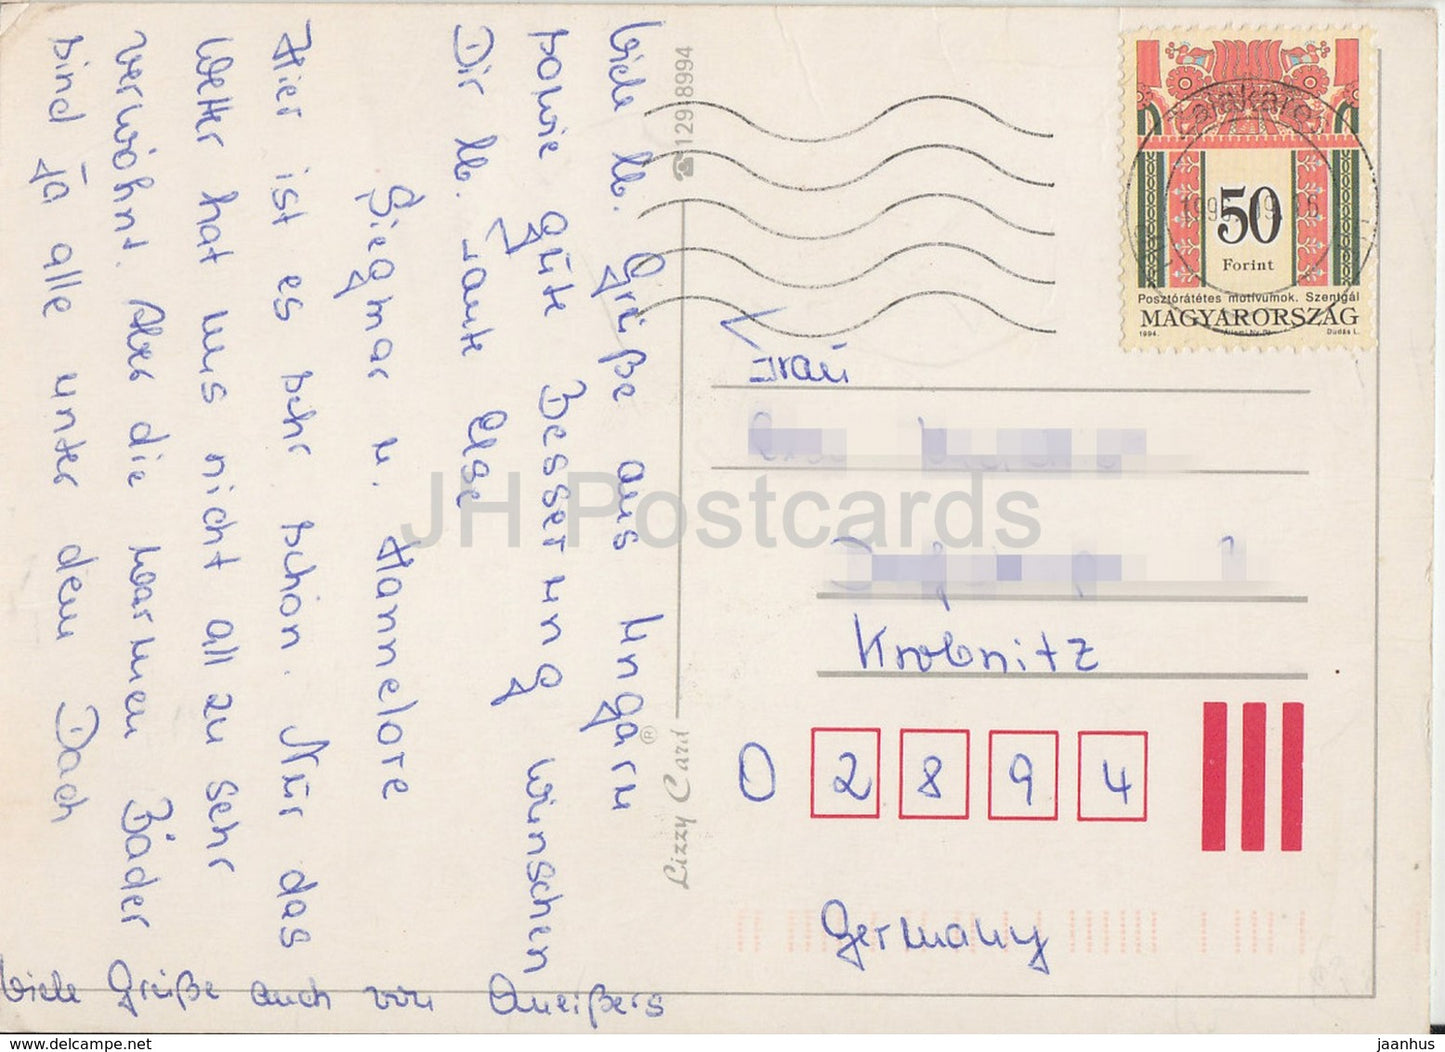 Viele lb. Grüße aus Ungarn
sowie gute Besserung wünschen
Dir lb. Tante Else
Siegmar u. Hannelore
Hier ist es sehr schön. Nur das
Wetter hat uns nicht all zu sehr
verwöhnt. Aber die warmen Bäder
sind ja alle unter dem Dach
Viele Grüße auch von
☎ 129 8994
Lizzy Card ®
50
Forint
Posztórátétes motívumok. Szentgál
MAGYARORSZÁG
1994.
Állami Ny. Bp.
Dudás L.
Frau
Krobnitz
0 2894
Germany
JH Postcards
www.delcampe.net
jaanhus